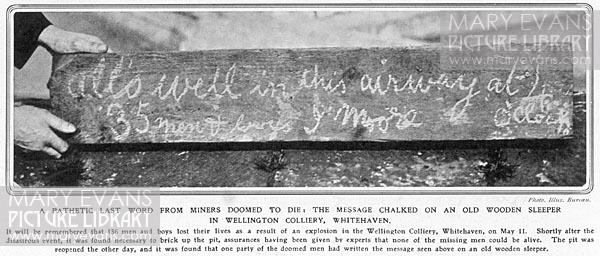 All's well in this airway at
35 men & boys J Moore
o'clock
Photo. Illus. Bureau.
A PATHETIC LAST WORD FROM MINERS DOOMED TO DIE: THE MESSAGE CHALKED ON AN OLD WOODEN SLEEPER
IN WELLINGTON COLLIERY, WHITEHAVEN.
It will be remembered that 136 men and boys lost their lives as a result of an explosion in the Wellington Colliery, Whitehaven, on May 11. Shortly after the
disastrous event, it was found necessary to brick up the pit, assurances having been given by experts that none of the missing men could be alive. The pit was
reopened the other day, and it was found that one party of the doomed men had written the message seen above on an old wooden sleeper.
MARY EVANS
PICTURE LIBRARY
www.maryevans.com
MARY EVANS
PICTURE LIBRARY
www.maryevans.com